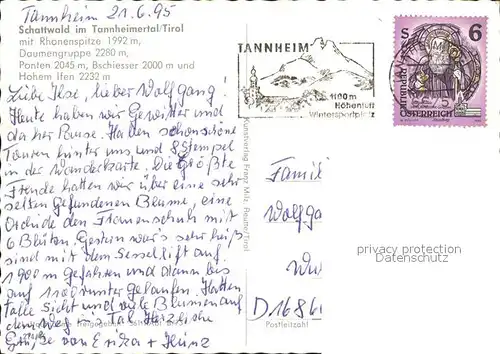 Tannheim 21.6.95
Schattwald im Tannheimertal/Tirol
mit Rhonenspitze 1992 m,
Daumengruppe 2280 m,
Ponten 2045 m, Bschiesser 2000 m und
Hohem Ifen 2232 m
Liebe Ilse, lieber Wolfgang!
Heute haben wir Gewitter und
daher Pause. Haben schon schöne
Touren hinter uns und 8 Stempel
in der Wanderkarte. Die Größte
Freude hatten wir über eine sehr
selten gefundenen Blume, eine
Orchidee den Frauenschuh mit
6 Blüten. Gestern war's sehr heiß
sind mit dem Sessellift auf
1900 m gefahren und dann bis
auf 1100 runter gelaufen. Hatten
tolle Sicht und viele Blumen auf
dem Weg ins Tal. Herzliche
Grüße von Erika + Heinz
Kunstverlag Franz Milz, Reutte/Tirol
TANNHEIM
1100 m
Höhenluft
Wintersportplatz
S 6
ÖSTERREICH
Famili
Wolfga
Wu
D 1686
Postleitzahl
privacy protection
Datenschutz